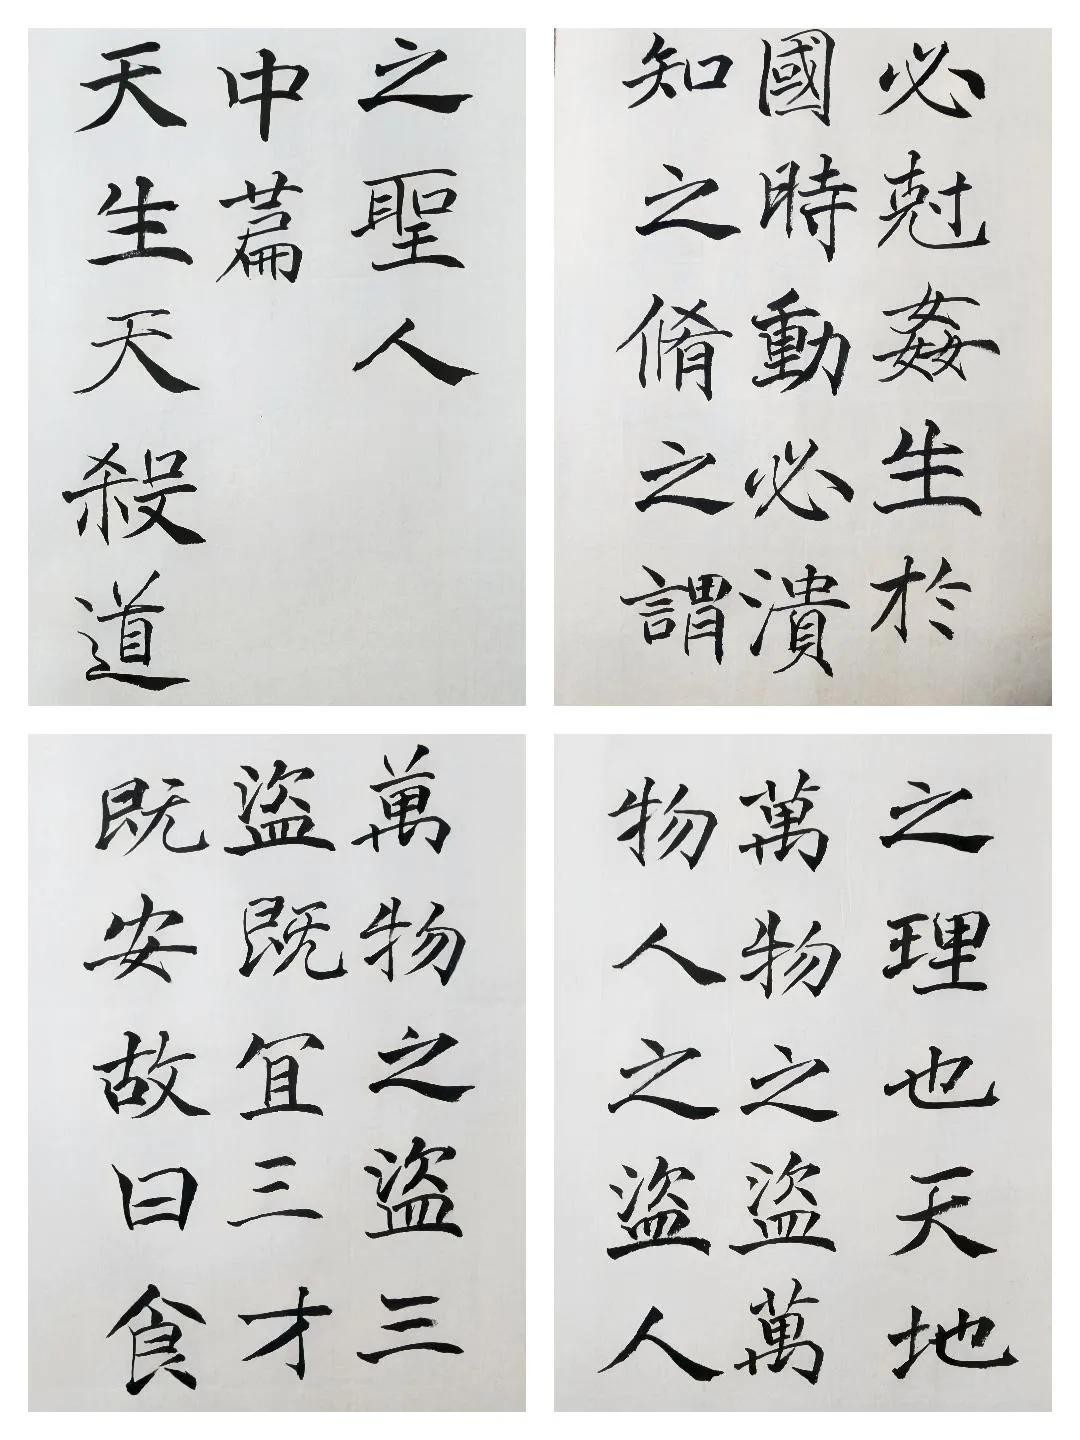 必尅姦生於
國時動必潰
知之脩之謂
之聖人
中篇
天生天殺道
之理也天地
萬物之盜萬
物人之盜人
萬物之盜三
盜既宜三才
既安故曰食